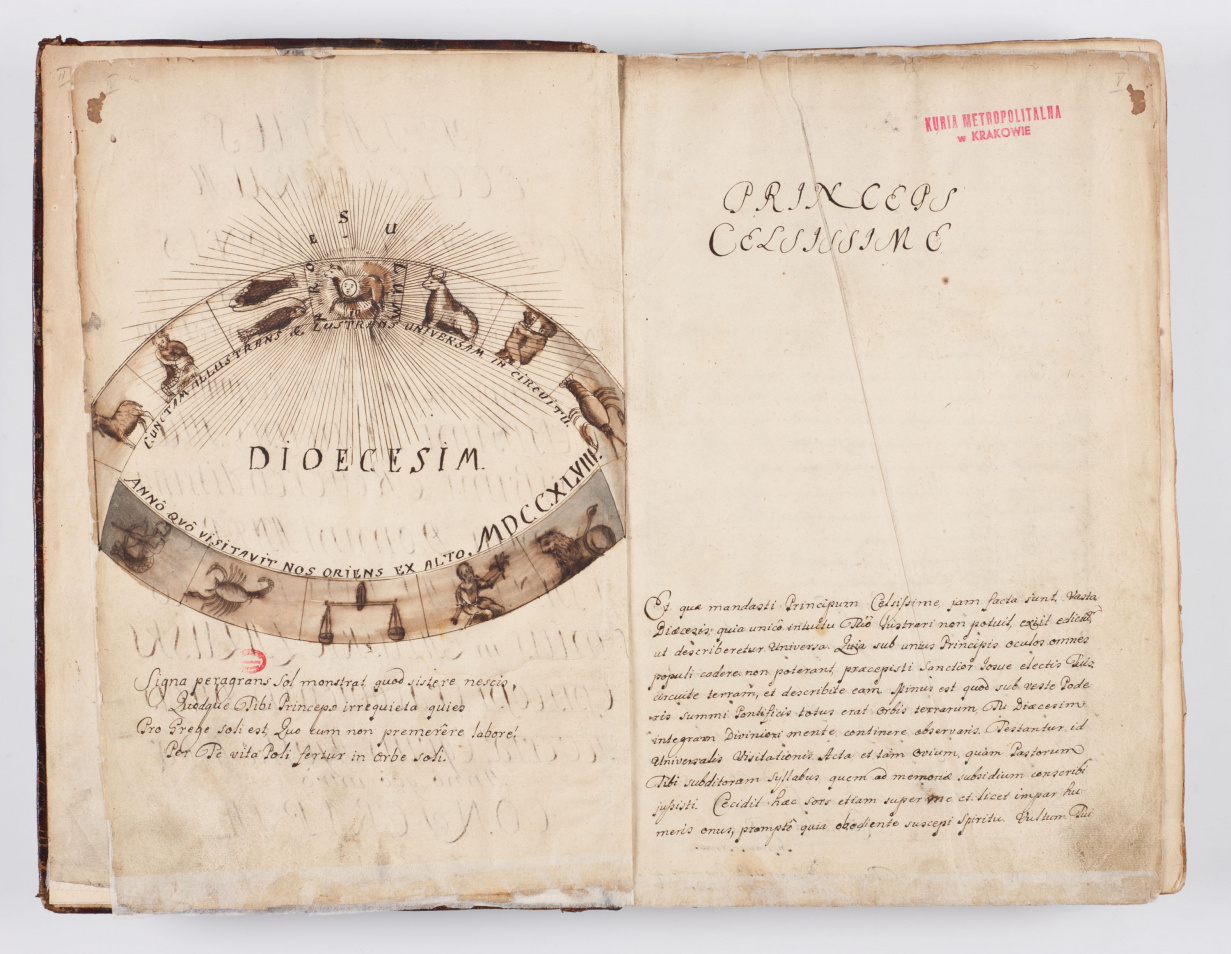 E S U
CUNCTAM ILLUSTRANS & LUSTRANS UNIVERSAM IN CIRCUITU.
DIOECESIM.
ANNÔ QVÔ VISITAVIT NOS ORIENS EX ALTO. MDCCXLVIII.
Signa peragrans Sol monstrat quod sistere nescis
Quodque Tibi Princeps irrequieta quies
Pro Grege soli est, Quo eum non premerêre labore!
Per Te vita Poli fertur in Orbe soli.
KURIA METROPOLITALNA
w KRAKOWIE
PRINCEPS
CELSISSIME
Et quæ mandasti Principum Celsissime jam facta sunt. Vasta
Diœcesis quia unicô intuitu Tuô lustrari non potuit, exiit edictũ,
ut describeretur Universa. Quia sub unius Principis oculos omnes
populi cadere non poterant, præcepisti Sanctior Iosue electis Tuis
circuite terram, et describite eam. Minus est quod sub veste Pode
ris summi Pontificis totus erat Orbis terrarum, Tu Diæcesim
integram Diviniori mente, continere observaris. Testantur id
Universalis Visitationis Acta et tàm Ovium, quàm Pastorum
Tibi subditorum Syllabus, quem ad memoriæ subsidium conscribi
jussisti. Cecidit hæc sors etiam super me et licet impar hu
meris onus, promptô quia obediente suscepi Spiritu. Vultum Tui